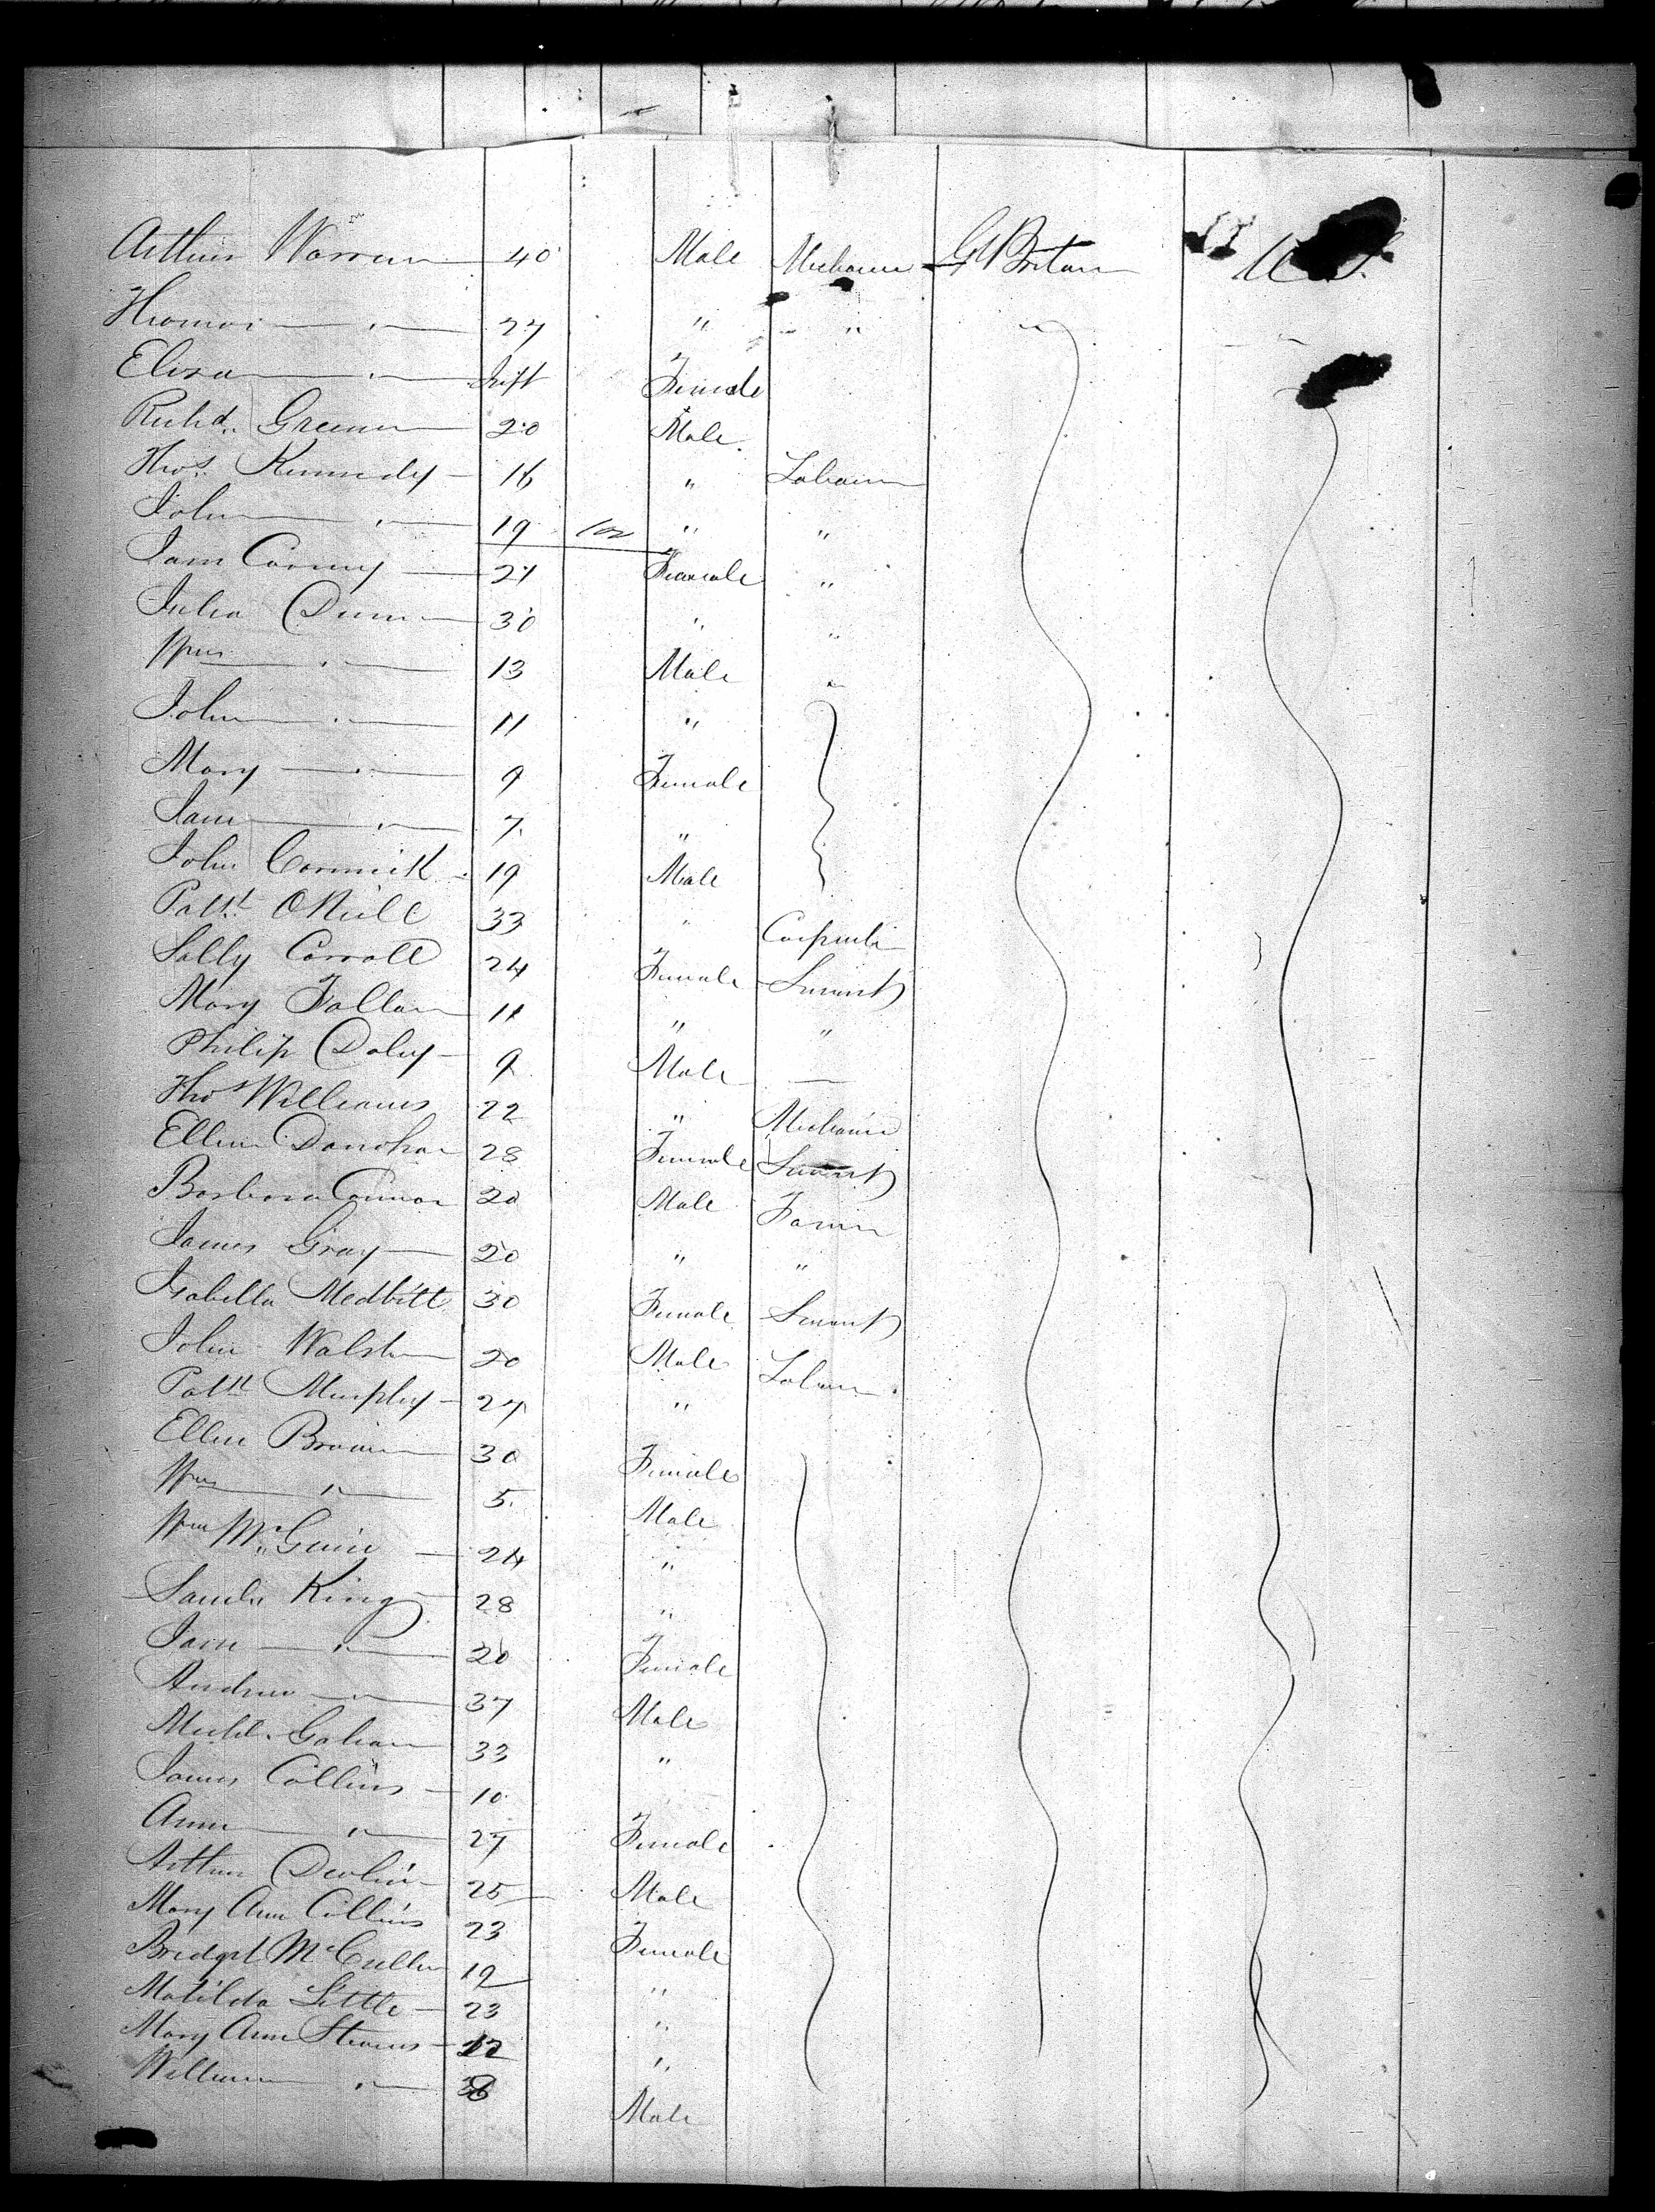 Arthur Warren 40 Male Mechanic Gt Britain U S
Thomas " 27 " "
Eliza " Inft Female
Richd. Green 20 Male
Thos. Kennedy 16 " Laborer
John " 19 100 " "
Jane Conny 21 Female "
Julia Dunn 30 " "
Wm " 13 Male "
John " 11 "
Mary " 9 Female
Jane " 7 "
John Cormick 19 Male
Patk. ONeill 33 " Carpenter
Sally Carroll 24 Female Servant
Mary Fallan 11 " "
Philip Daley 9 Male —
Thos Williams 22 " Mechanic
Ellen Donohoe 28 Female Servant
Barbara Connor 20 Male Farmer
James Gray 20 " "
Isabella 30 Female Servant
John Walsh 20 Male Laborer
Patk Murphy 27 "
Ellen Brown 30 Female
Wm " 5 Male
Wm McGuire 24 "
King 28 "
Jane " 20 Female
Andrew " 37 Male
Michl. Gahan 33 "
James Collins 10
Anne " 27 Female
Arthur Devlin 25 Male
Mary Ann Collins 23 Female
Bridget McCullen 19 "
Matilda Little 23 "
Mary Ann Stevens "
William " Male